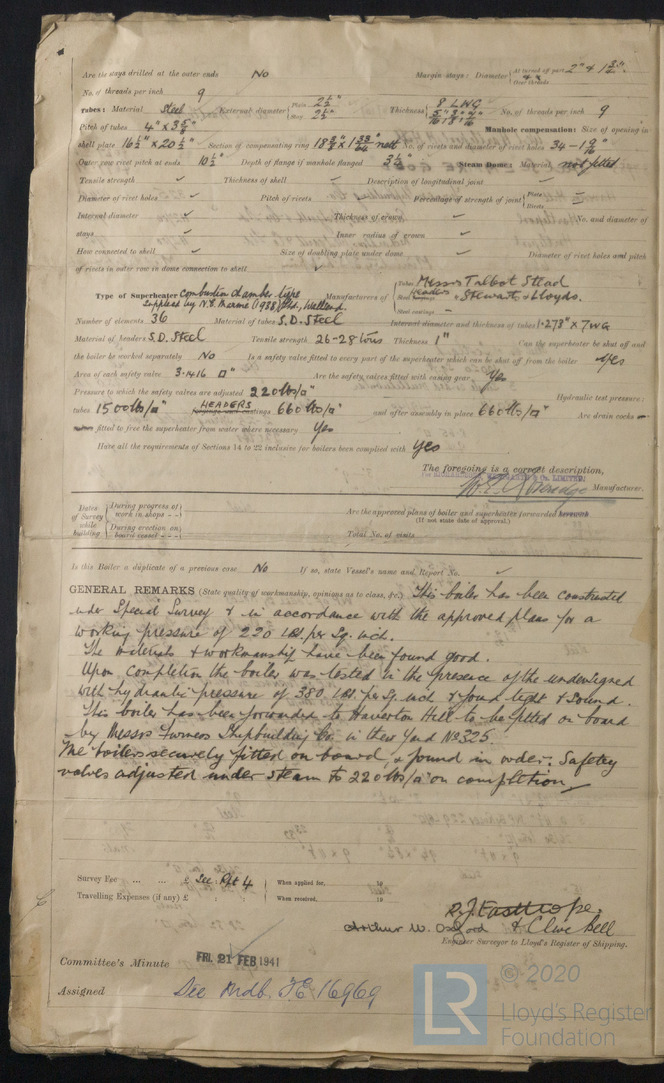 Are the stays drilled at the outer ends No Margin stays: Diameter { At turned off part 2" & 1 3/4".
No. of threads per inch 9 Over threads
Tubes: Material Steel External diameter { Plain 2 1/2" Stay 2 1/2" Thickness { 8 LWG No. of threads per inch 9
Pitch of tubes 4" x 3 5/8" Manhole compensation: Size of opening in
shell plate 16 1/2" x 20 1/2" Section of compensating ring nett No. of rivets and diameter of rivet holes 34 - 1 9/16
Outer row rivet pitch at ends 10 1/2" Depth of flange if manhole flanged 3 1/2" Steam Dome: Material not fitted
Tensile strength Thickness of shell Description of longitudinal joint
Diameter of rivet holes Pitch of rivets Percentage of strength of joint { Plate Rivets
Internal diameter Thickness of crown No. and diameter of
stays Inner radius of crown
How connected to shell Size of doubling plate under dome Diameter of rivet holes and pitch
of rivets in outer row in dome connection to shell
Type of Superheater Combustion chamber type Manufacturers of { Tubes Messrs Talbot Stead
Supplied by N.E. Marine (1938) Ltd., Wallsend Headers " Stewarts & Lloyds.
Steel castings -
Number of elements 36 Material of tubes S.D. Steel Internal diameter and thickness of tubes 1.278" x 7WG
Material of headers S.D. Steel Tensile strength 26-28 tons Thickness 1" Can the superheater be shut off and
the boiler be worked separately No Is a safety valve fitted to every part of the superheater which can be shut off from the boiler Yes
Area of each safety valve 3.1416 □" Are the safety valves fitted with easing gear Yes
Pressure to which the safety valves are adjusted 220 lbs/□" Hydraulic test pressure:
tubes 1500 lbs/□" HEADERS castings 660 lbs/□" and after assembly in place 660 lbs/□" Are drain cocks or
fitted to free the superheater from water where necessary Yes
Have all the requirements of Sections 14 to 22 inclusive for boilers been complied with Yes
The foregoing is a correct description,
Manufacturer.
Dates of Survey while building { During progress of work in shops - - During erection on board vessel - - -
Are the approved plans of boiler and superheater forwarded herewith
(If not state date of approval.)
Total No. of visits
Is this Boiler a duplicate of a previous case No If so, state Vessel's name and Report No.
GENERAL REMARKS (State quality of workmanship, opinions as to class, &c.) This boiler has been constructed
under Special Survey & in accordance with the approved plans for a
working pressure of 220 lbs. per sq. inch.
The materials & workmanship have been found good.
Upon completion the boiler was tested in the presence of the undersigned
with hydraulic pressure of 380 lbs. per sq. inch & found tight & sound.
This boiler has been forwarded to Haverton Hill to be fitted on board
by Messrs Furness Shipbuilding Co. in their Yard No 325.
The boiler securely fitted on board, & found in order. Safety
valves adjusted under steam to 220 lbs/□" on completion
Survey Fee ... ... £ See Rpt 4 When applied for, 19
Travelling Expenses (if any) £ : : When received, 19
R.J. Easthope.
Arthur W. Oxford & Clive Bell
Engineer Surveyor to Lloyd's Register of Shipping.
Committee's Minute FRI. 21 FEB 1941
Assigned See Mdb. F.E. 16969
LR
© 2020
Lloyd's Register
Foundation